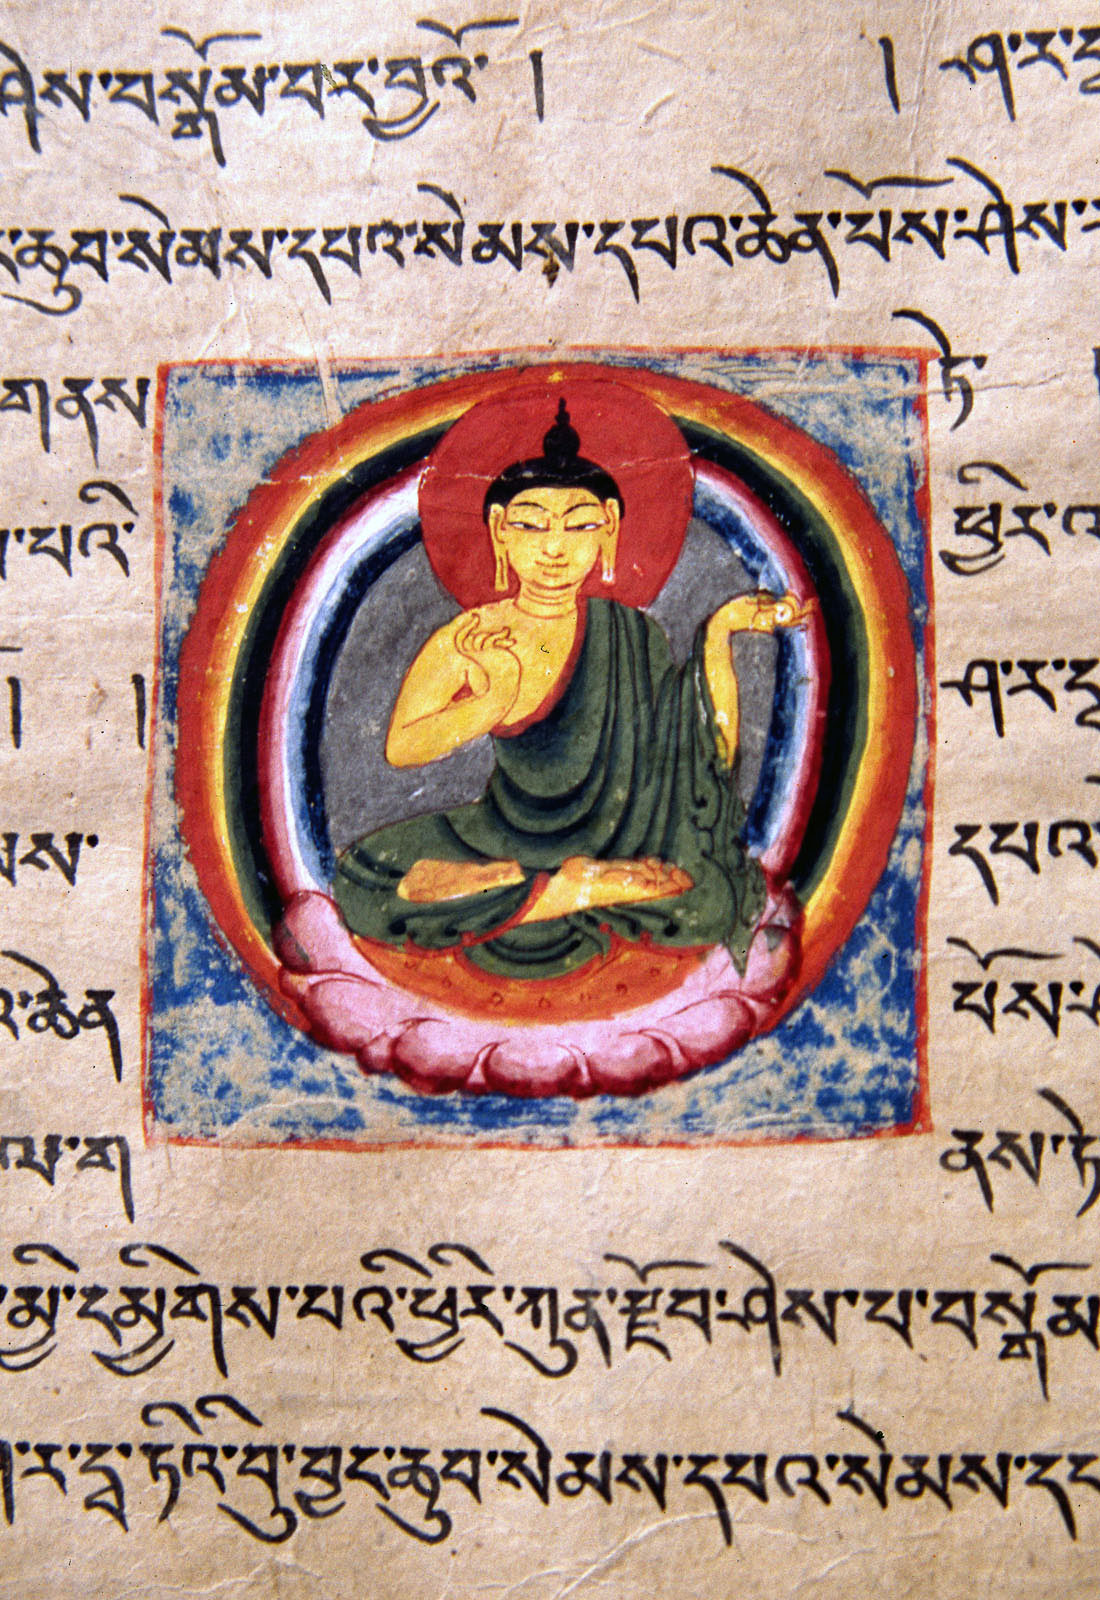 ཤེས་བསྒོམ་བར་བྱའོ་ །   ། ཤ་ར་དྭ
ཆུབ་སེམས་དཔའ་སེམས་དཔའ་ཆེན་པོས་ཤེས་ར
གནས   ཏེ་
པའི་   ཕྱིར་འ
།   །   ཤ་ར་དྭ
མས་   དཔའ་
ཆེན   པོས་ཤེ
ལ་ག   ནས་ཏེ
མྱི་དམྱིགས་པའི་ཕྱིར་ཀུན་རྫོབ་ཤེས་པ་བསྒོམ
ཤ་ར་དྭ་ཏའི་བུ་བྱང་ཆུབ་སེམས་དཔའ་སེམས་དཔ